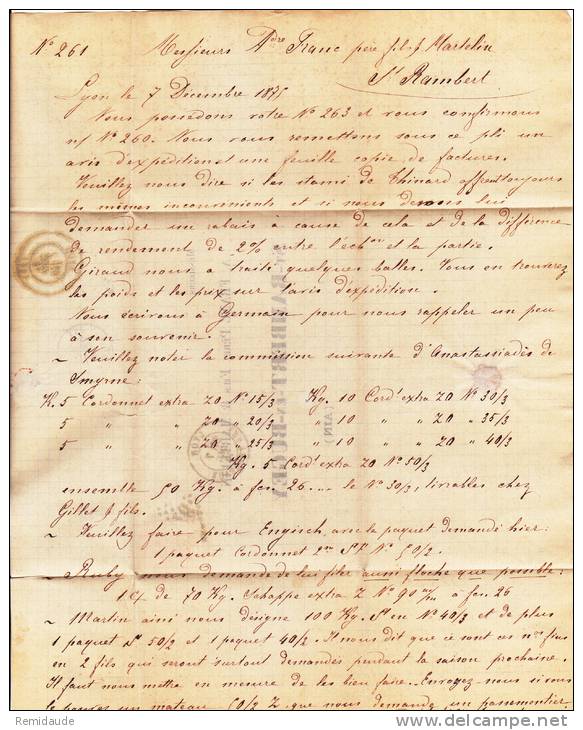 No 261 Messieurs Adre Franc père fils & Martelin
St Rambert
Lyon le 7 Décembre 1875
Nous possedons votre No 263 et vous confirmons
n/ No 260. Nous vous remettons sous ce pli un
avis d'expédition et une feuille copie de factures.
Veuillez nous dire si les stami de Thinard offrent toujours
les mêmes inconvenients et si nous devons lui
demander un rabais à cause de cela et de la différence
de rendement de 2% entre l'échon et la partie.
Giraud nous a traité quelques balles. Vous en trouverez
les poids et les prix sur l'avis d'expédition.
Nous écrivons à Germain pour nous rappeler un peu
à son souvenir.
~ Veuillez noter la commission suivante d'Anastassiadès de
Smyrne:
K. 5 Cordonnet extra Z0 No 15/3 Kg. 10 Cordt extra Z0 No 30/3
5 " " Z0 " 20/3 " 10 " " Z0 " 35/3
5 " " Z0 " 25/3 " 10 " " Z0 " 40/3
Kg. 5 Cordt extra Z0 No 50/3
ensemble 50 Kg. à fcs. 26 .... le No 30/3, livrables chez
Gillet & fils.
~ Veuillez faire pour Engisch, avec le paquet demandé hier:
1 paquet Cordonnet 2me No 50/2.
~ Ruby nous demande de lui filer aussi floche que possible.
1 C/ de 70 Kg. Schappe extra Z No 90 m/m à fcs. 26
~ Martin ainé nous désigne 100 Kg. St en No 40/3 et de plus
1 paquet 50/2 et 1 paquet 40/2. Il nous dit que ce sont ces nos fins
en 2 fils qui seront surtout demandés pendant la saison prochaine.
Il faut nous mettre en mesure de les bien faire. Envoyez-nous si vous
le pouvez un mateau 50/2 Z que nous demande un passementier.
ST RAMBERT-EN-BUGEY
(AIN)
Remidaude
www.delcampe.net